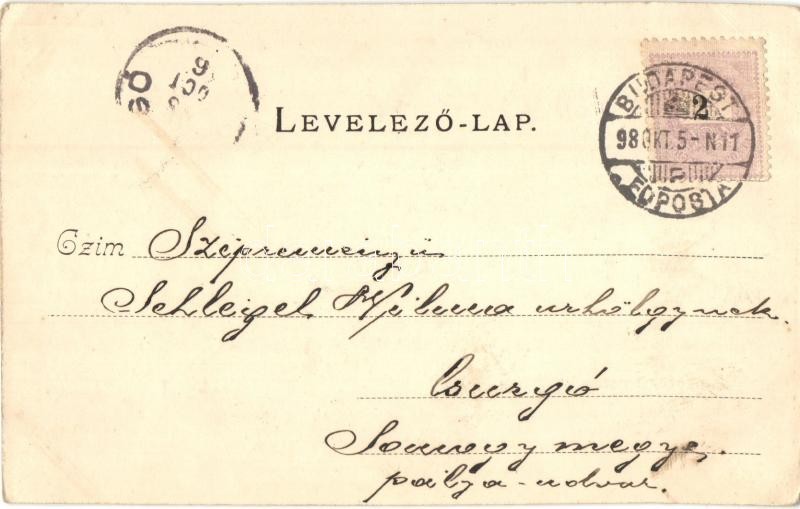 LEVELEZŐ-LAP.
BUDAPEST
2
98 OKT. 5 - N 11
FŐPOSTA
Czim Szépreményű
Schlegel Vilma urhölgynek.
Csurgó
Somogy megye.
pálya-udvar.